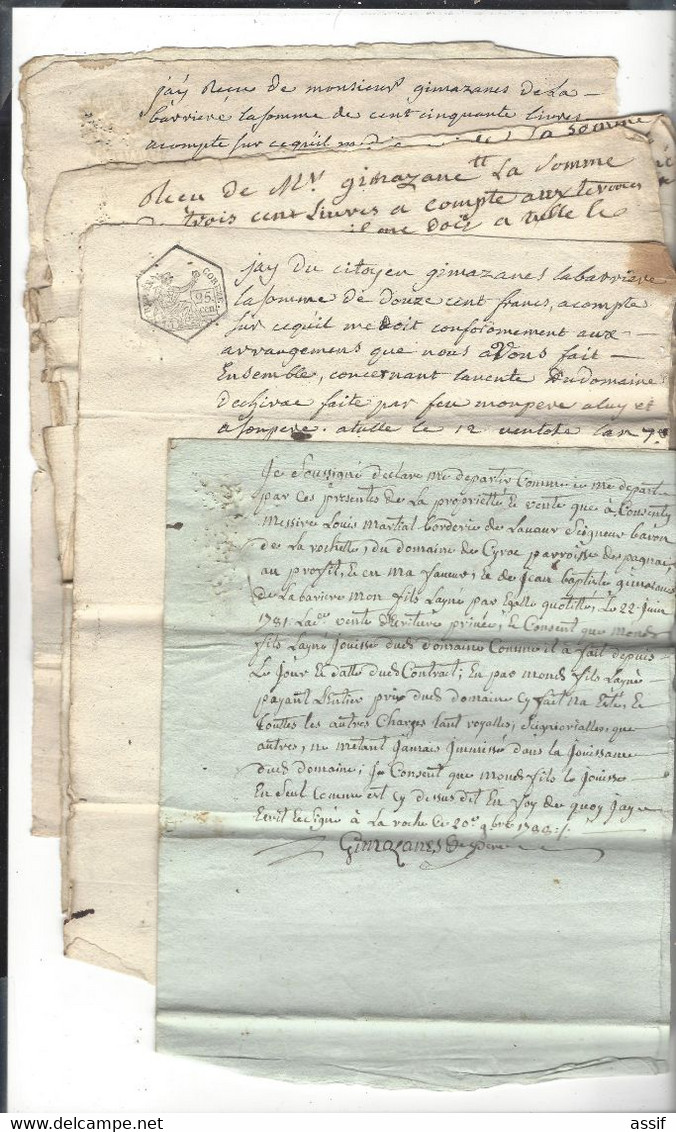 jay Recu de monsieur gimazanes de La
barriere la somme de cent cinquante livres
acompte sur cequil me la somme
Recu de Mr. gimazane La Somme
trois cent Livres a compte aux termes
me doit a tulle le
25
cent
jay du citoyen gimazanes labarriere
la somme de douze cent francs, acompte
sur cequil me doit conforement aux
arrangemens que nous avons fait
Ensemble, concernant la vente du domaine
dechirac faite par feu monpere a luy et
a sonpere. atulle le 12 ventose lan 7e
Je Soussigné declare me departir Comme je me depart
par Ces presentes de La proprietté & vente que à Consenty
Messire Louis Martial borderie de Lavaur Seigneur baron
de La rochette, du domaine de Cyrac parroisse de pagnac
au profit, & en ma faveur, & de Jean baptiste gimazanes
de Labariere mon fils Layné par Egalle quotitté, Le 22 Juin
1781. La de vente d'Ecriture privée; & Consent que mond
fils Layné Jouisse dud domaine Comme il à fait depuis
Le Jour & datte dud Contrat; En par mond fils Layné
payant L'Entier prix dud domaine
touttes les autres Charges tant royalles, Seigneurialles, que
autres, ne m'etant Jamais Immissé dans la Jouissance
dud domaine; Je Consent que mond fils le Jouisse
En Seul Comme est Cy dessus dit En foy de quoy Jay
Ecrit & Signé à La roche Ce 20e 9bre
Gimazanes pere
www.delcampe.net
assif